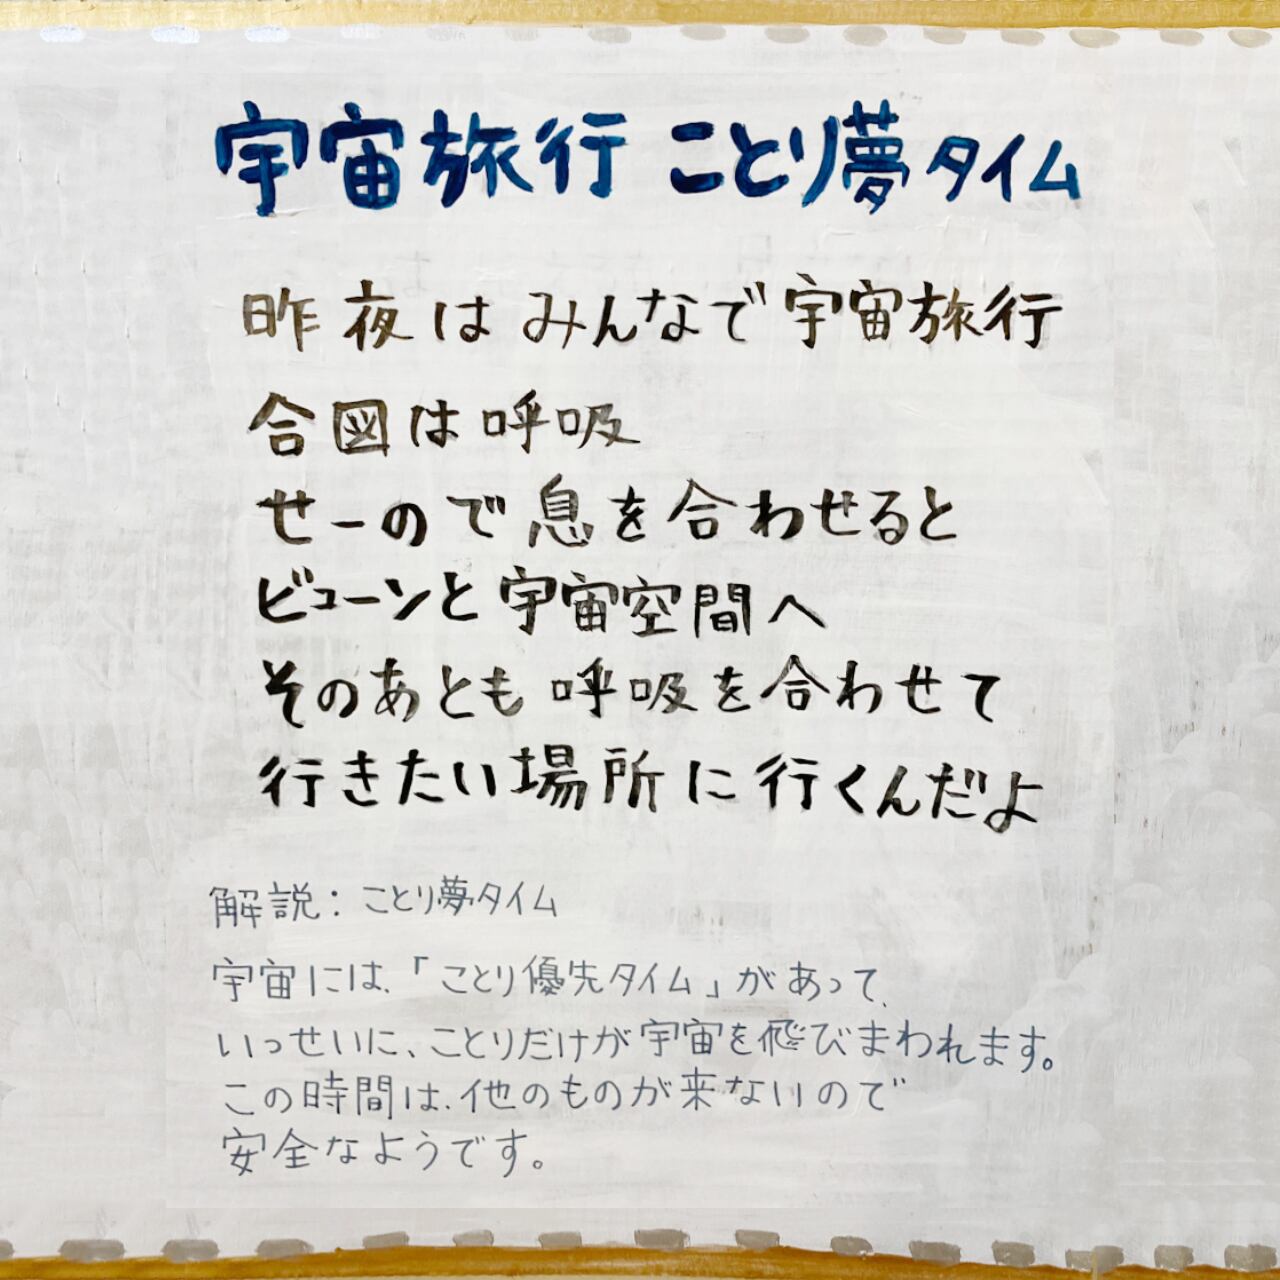 宇宙旅行 ことり夢タイム
昨夜はみんなで宇宙旅行
合図は呼吸
せーので息を合わせると
ビューンと宇宙空間へ
そのあとも呼吸を合わせて
行きたい場所に行くんだよ
解説：ことり夢タイム
宇宙には、「ことり優先タイム」があって、
いっせいに、ことりだけが宇宙を飛びまわれます。
この時間は、他のものが来ないので
安全なようです。